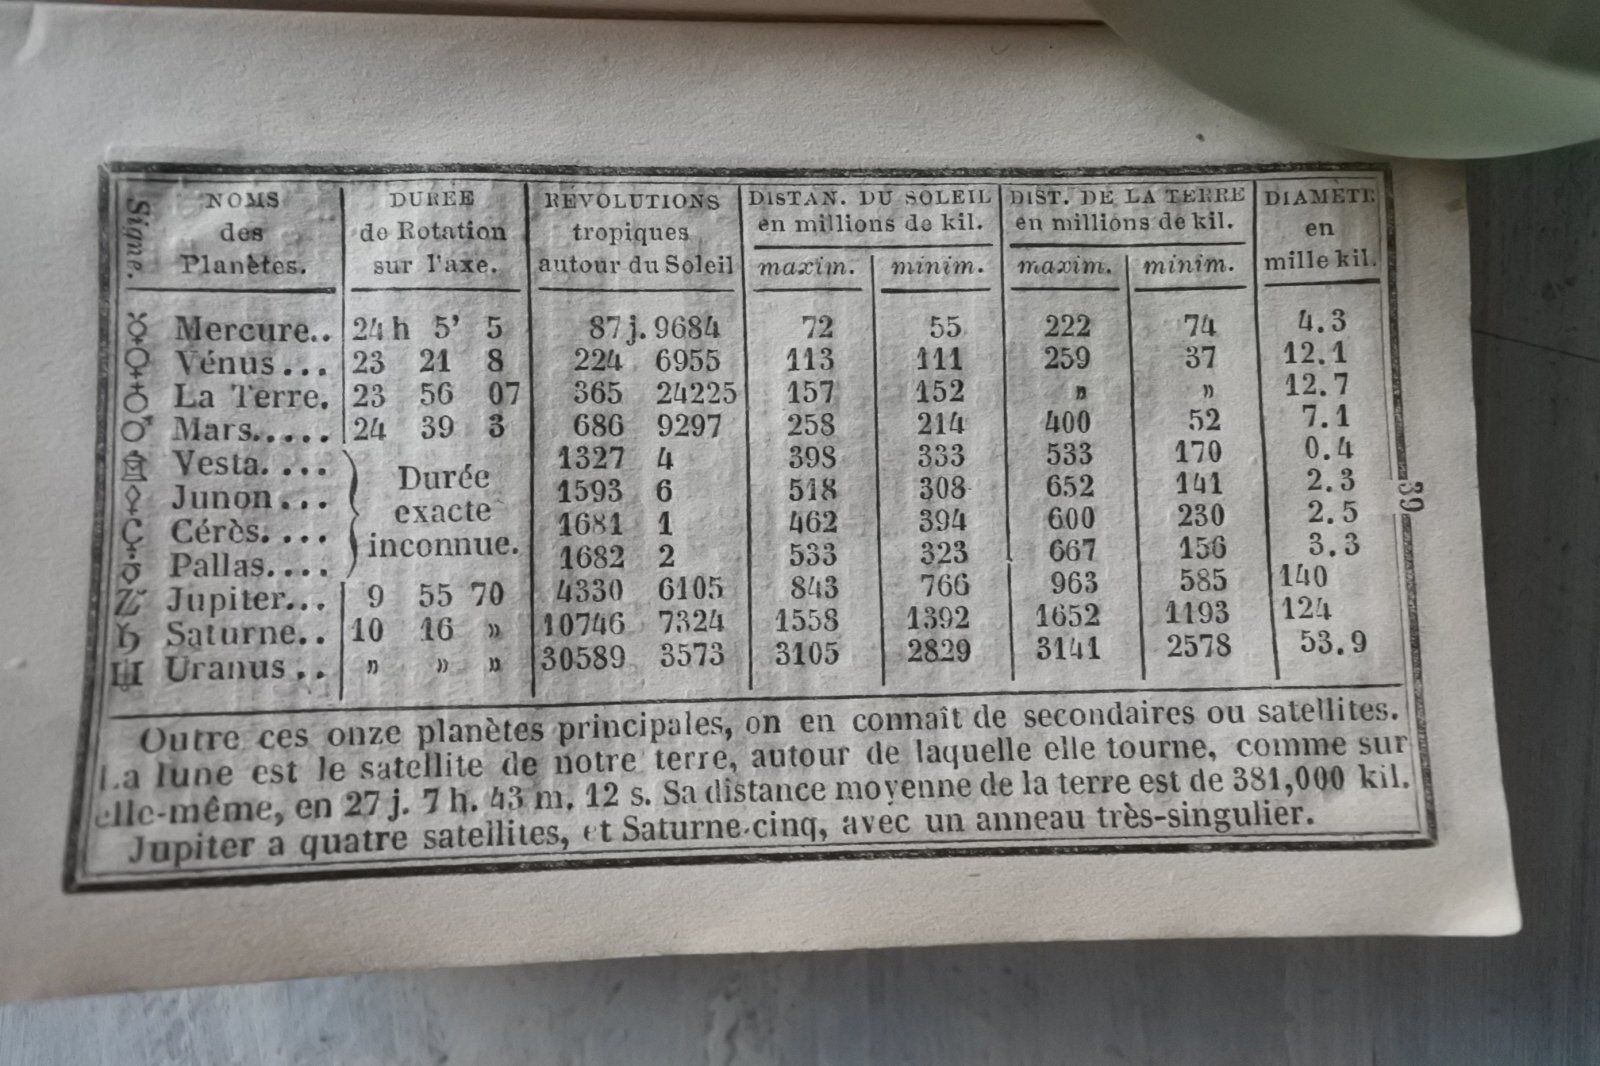 Signe. NOMS DURÉE RÉVOLUTIONS DISTAN. DU SOLEIL DIST. DE LA TERRE DIAMÈTR
des de Rotation tropiques en millions de kil. en millions de kil. en
Planètes. sur l'axe. autour du Soleil maxim. minim. maxim. minim. mille kil.
☿ Mercure.. 24 h 5' 5 87 j. 9684 72 55 222 74 4.3
♀ Vénus... 23 21 8 224 6955 113 111 259 37 12.1
♁ La Terre. 23 56 07 365 24225 157 152 » » 12.7
♂ Mars..... 24 39 3 686 9297 258 214 400 52 7.1
⚶ Vesta.... Durée 1327 4 398 333 533 170 0.4
⚵ Junon... exacte 1593 6 518 308 652 141 2.3
⚳ Cérès.... inconnue. 1681 1 462 394 600 230 2.5
⚴ Pallas.... 1682 2 533 323 667 156 3.3
♃ Jupiter... 9 55 70 4330 6105 843 766 963 585 140
♄ Saturne.. 10 16 » 10746 7324 1558 1392 1652 1193 124
♅ Uranus.. » » » 30589 3573 3105 2829 3141 2578 53.9
39
Outre ces onze planètes principales, on en connaît de secondaires ou satellites.
La lune est le satellite de notre terre, autour de laquelle elle tourne, comme sur
elle-même, en 27 j. 7 h. 43 m. 12 s. Sa distance moyenne de la terre est de 381,000 kil.
Jupiter a quatre satellites, et Saturne cinq, avec un anneau très-singulier.